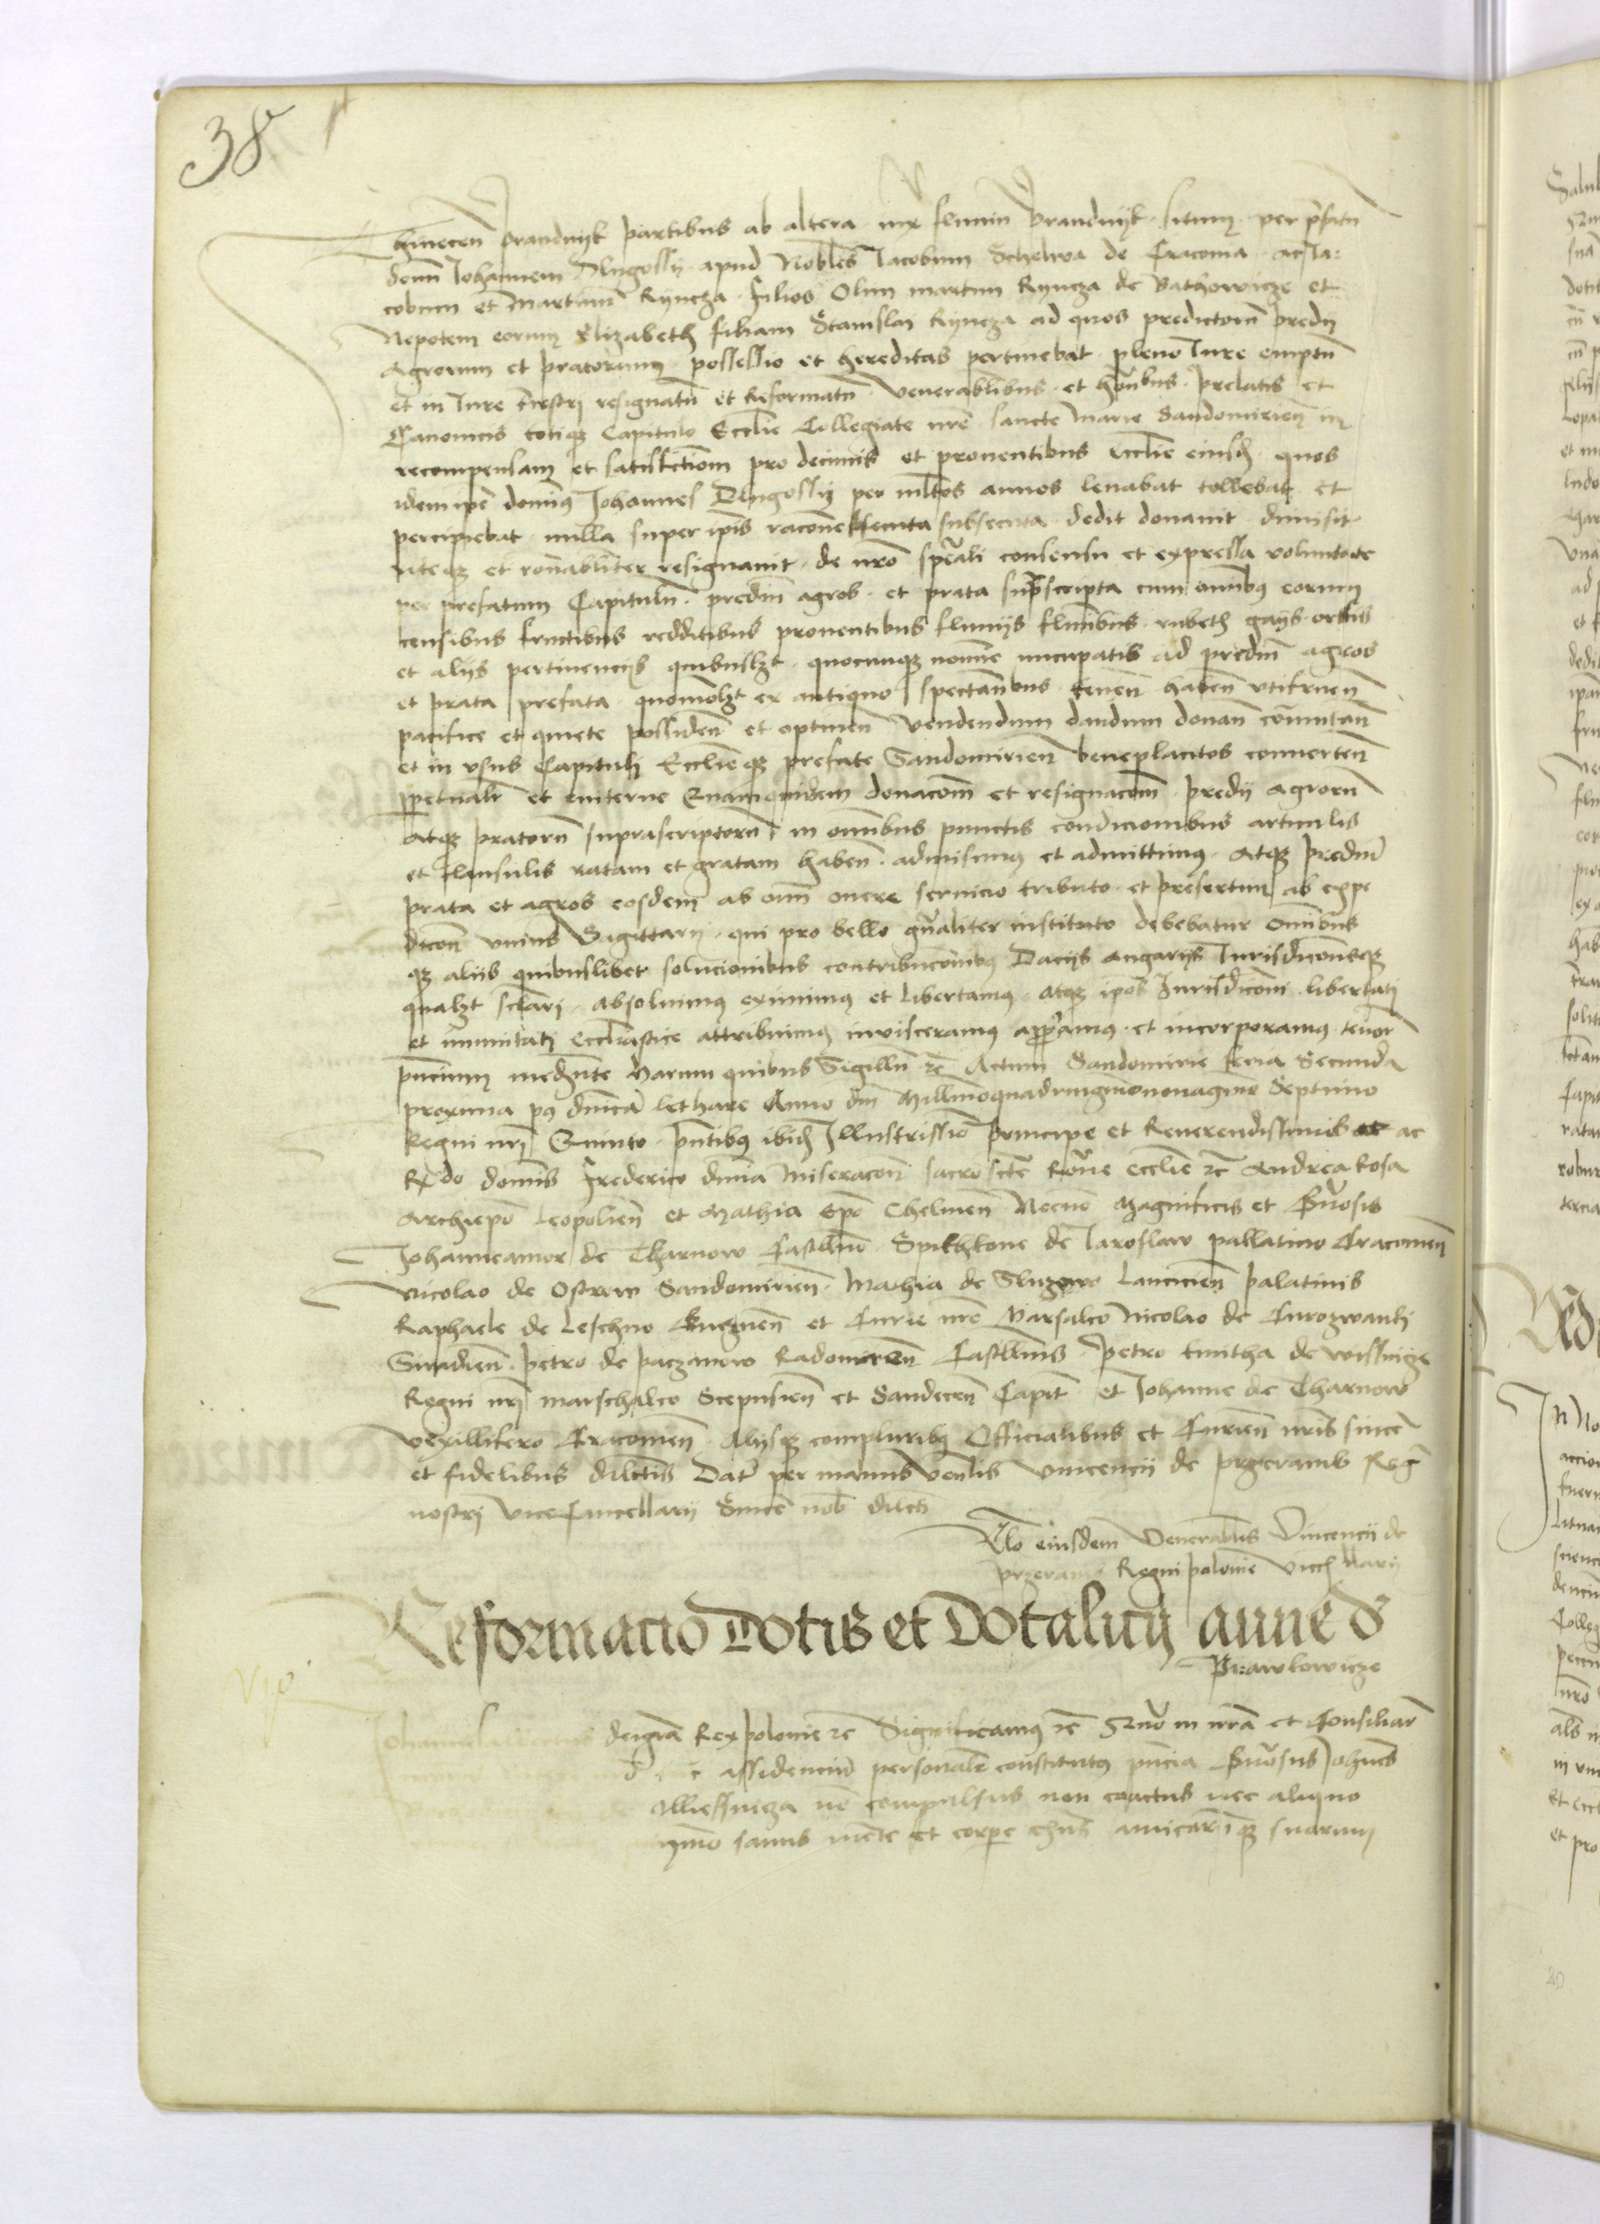 38
Brandwyk partibus ab altera inter fluvium Brandwyk situm per prefatum
domin Johannem Dlugossy apud Nobiles Jacobum de Cracovia ac Ja:
cobum et Martinum Ryncza filios olim martini Ryncza de Bathowicze et
Nepotem eorum Elizabeth filiam Stanislai Ryncza ad quos predictorum predij
Agrorum et pratorum possessio et hereditas pertinebat pleno Iure emptum
et in Iure resignatum et Reformatum venerabilibus et prelatis et
Canonicis totique Capitulo Ecclie Collegiate nre sancte Marie Sandomirien in
recompensam et satisfactiom pro decimis et proventibus ecclie quos
idem ipe dominus Johannes Dlugossy per multos annos levabat tollebat et
percipiebat nulla super ipis racone subsecuta dedit donavit dimisit
riteque et resignavit de nro speali consensu et expressa voluntate
per prefatum Capitulum predium agros et prata suprascripta cum omnibus eorum
censibus fructibus redditibus proventibus fluvijs fluminibus rubetis gays ortis
et alijs pertinencijs quibuslzt quocumque nomine nuncupatis ad predium agros
et prata prefata quomolzt ex antiquo spectantibus tenen haben utifruen
pacifice et quiete possiden et optinen vendendum dandum donan
et in usus Capituli Ecclieque prefate Sandomirien beneplacitos converten
perpetualiter et eviterne Quamquidem donacom et resignacom predij agrorum
Atque pratorum suprascriptorum in omnibus punctis condicionibus articulis
et clausulis ratam et gratam haben admisimus et admittimus Atque predium
prata et agros eosdem ab omni onere servicio tributo et presertim ab expe
dicom unius Sagittarij qui pro bello gnaliter instituto debebatur omnibus
que alijs quibuslibet solucionibus contribucionibus Dacijs angarijs Jurisdiconeque
qualzt sclari absolvimus eximimus et libertamus atque ipos Jurisdicom libertati
et imunitati ecclesiastice attribuimus invisceramus et incorporamus tenore
pncium mediante Harum quibus Sigillum etc Actum Sandomirie feria Secunda
proxima post dnicam letare Anno dni Millimoquadringmononagmo Septimo
Regni nri Quinto pntibus ibidem Illustrissimo principe et Reverendissimis ac
Rdo dominis Frederico divina miseracom sacro scte Rone ecclie etc Andrea Rosa
Archiepo Leopolien et Mathia Epo Chelmen Necno Magnificis et
Johanneamor de Tharnow Castllno Spithkone de Jaroslaw pallatino Cracovien
Nicolao de Ostrow Sandomirien Mathia de Sluzewo Lancicien palatinis
Raphaele de Leschno et Curie nre Marsalco Nicolao de Curozwanki
Siradien petro de paczanow Radomien Castllnis Petro kmitha de wissnicze
Regni nri marschalco Scepusien et Sandecen Capit et Johanne de Tharnow
vexillifero Cracovien Alijsque compluribus Officialibus et Curien nris sincere
et fidelibus dilctis Dat per manus venlis Vincencij de przeramb Regni
nostri ViceCancellarij Sincere nob dilcti
Rlo eiusdem Venerabilis Vincencij de
przeramb Regni polonie Vicecllarij
Reformacio Dotis et Dotalicij anne d
Prawlowicze
vijo
Johannes Albertus deigra Rex polonie etc Significamus etc in nra et Consiliar
assidencium personaliter constitutus pncia Johnes
Myessnicza non compulsus non coactus nec aliquo
ymo sanus mente et corpe exns amicorumque suorum